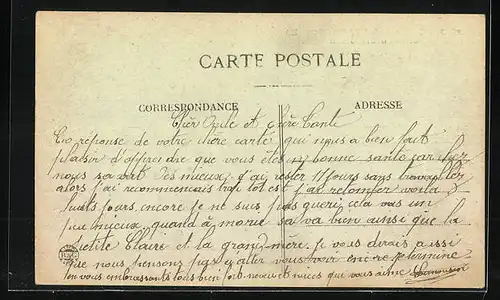 CARTE POSTALE
CORRESPONDANCE
ADRESSE
Cher Oncle et chère Tante
En réponse de votre chère carte qui nous a bien fait
plaisir d'apprendre que vous êtes en bonne santé car chez
nous sa vat très mieux j'ai rester 17 jours sans travailler
alors j'ai recommencais trop tot est j'ai retomber voila 8
huits jours encore je ne suis pas gueri cela vas un
peu mieux quand à marie sa va bien ainsi que la
petite Claire et la grand mère. je vous dirais aussi
que nous pensons pas y aller vous voir
en vous embrassants tous bien fort neveu et nièces qui vous aime